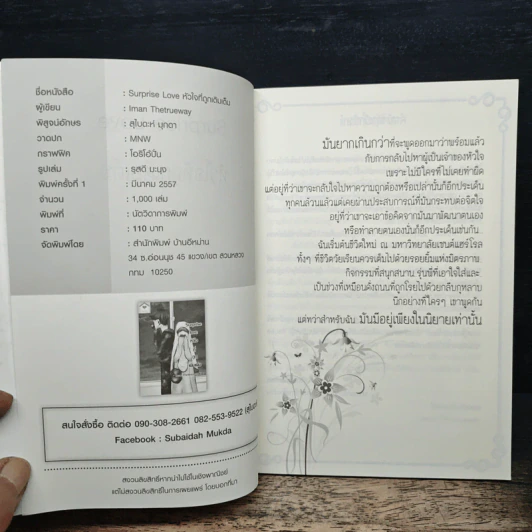 ชื่อหนังสือ : Surprise Love หัวใจที่ถูกเติมเต็ม
ผู้เขียน : Iman Thetrueway
พิสูจน์อักษร : สุไบดะห์ มุกดา
วาดปก : MNW
กราฟฟิค : โอธิโอ้ปั้น
รูปเล่ม : รุสดี มะนุง
พิมพ์ครั้งที่ 1 : มีนาคม 2557
จำนวน : 1,000 เล่ม
พิมพ์ที่ : นัตวิดาการพิมพ์
ราคา : 110 บาท
จัดพิมพ์โดย : สำนักพิมพ์ บ้านอีหม่าน
34 ซ.อ่อนนุช 45 แขวง/เขต สวนหลวง
กทม 10250
สนใจสั่งซื้อ ติดต่อ 090-308-2661 082-553-9522
Facebook : Subaidah Mukda
สงวนลิขสิทธิ์หากนำไปใช้ในเชิงพาณิชย์
แต่ไม่สงวนลิขสิทธิ์ในการเผยแพร่ โดยบอกที่มา
มันยากเกินกว่าที่จะพูดออกมาว่าพร้อมแล้ว
กับการกลับไปหาผู้เป็นเจ้าของหัวใจ
เพราะไม่มีใครที่ไม่เคยทำผิด
แต่อยู่ที่ว่าเขาจะกลับใจไปหาความถูกต้องหรือเปล่านั้นก็อีกประเด็น
ทุกคนล้วนแล้วแต่เคยผ่านประสบการณ์ที่มันกระทบต่อจิตใจ
อยู่ที่ว่าเขาจะเอาข้อคิดจากมันมาพัฒนาตนเอง
หรือทำลายตนเองนั่นก็อีกประเด็นเช่นกัน
ฉันเริ่มต้นชีวิตใหม่ ณ มหาวิทยาลัยเซนต์แฮร์โรล
ทั้งๆ ที่ชีวิตวัยเรียนควรเต็มไปด้วยรอยยิ้มแห่งมิตรภาพ
กิจกรรมที่สนุกสนาน รุ่นพี่ที่เอาใจใส่และ
เป็นช่วงที่เหมือนดั่งถนนที่ถูกโรยไปด้วยกลีบกุหลาบ
นึกอย่างที่ใครๆ เขาพูดกัน
แต่ทว่าสำหรับฉัน มันมีอยู่เพียงในนิยายเท่านั้น